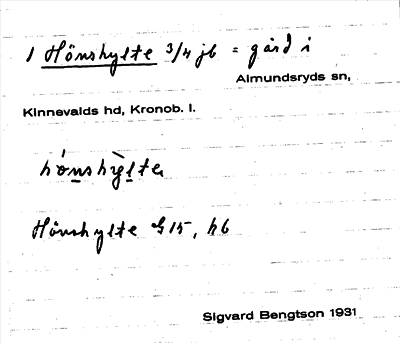 1 Hönshylte 3/4 jb = gård i
Almundsryds sn,
Kinnevalds hd, Kronob. l.
hö́nshỳlta
Hönshylte G 15, h6
Sigvard Bengtson 1931